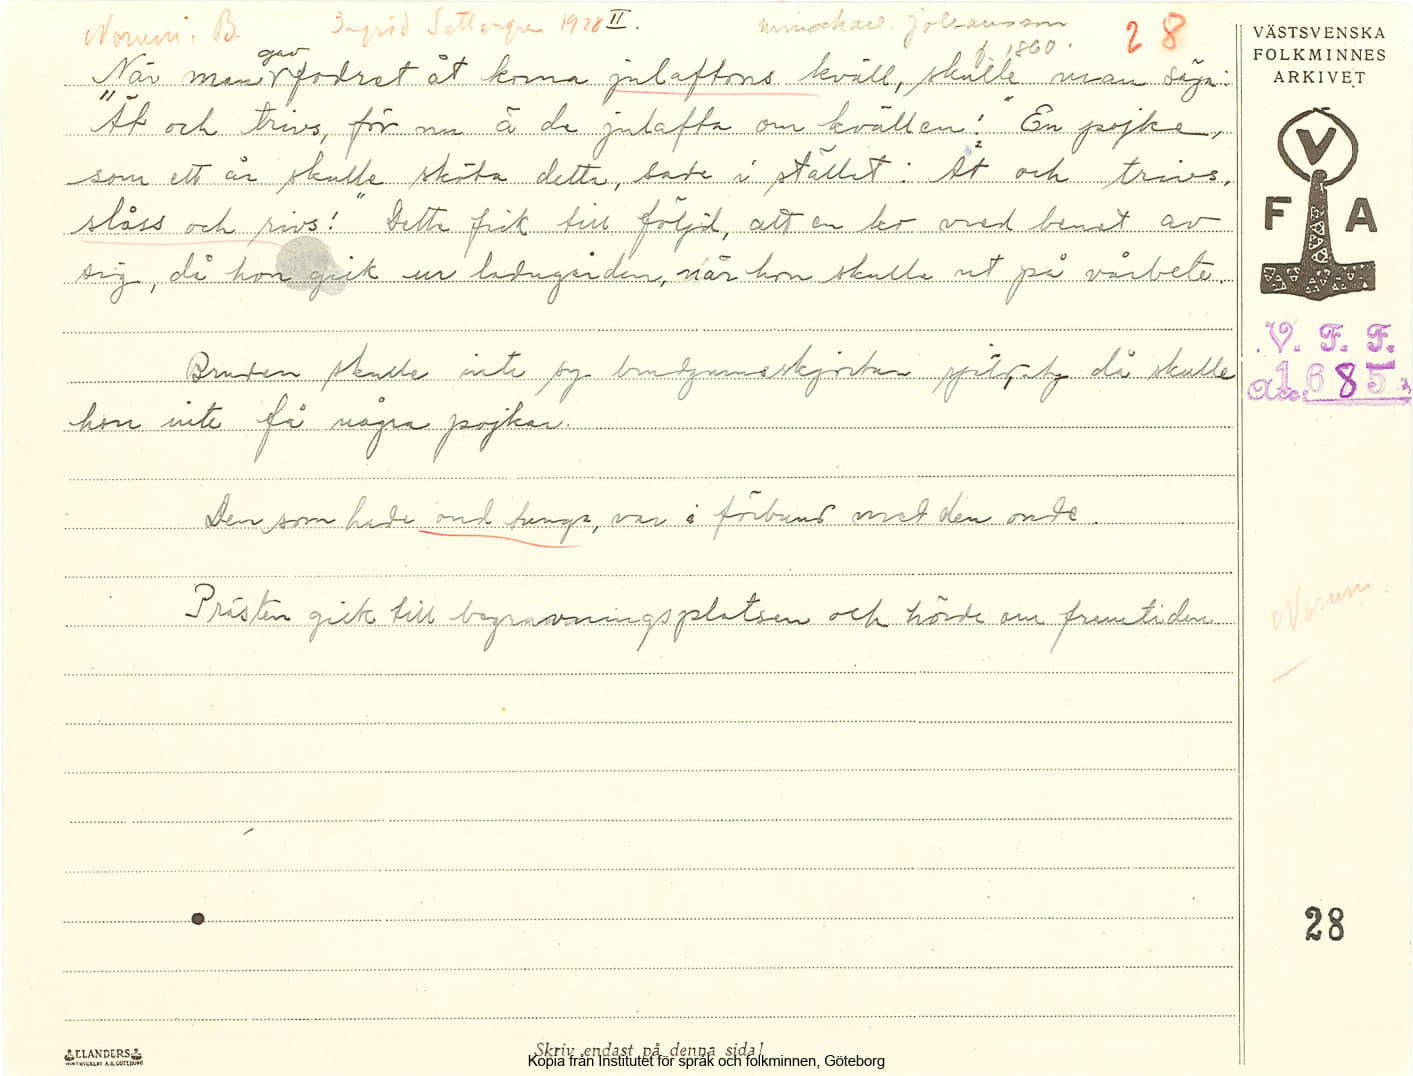 Norum. B. Ingrid Settergren 1928 II. Johansson 28
f. 1860.
När man gav fodret åt korna julaftons kväll, skulle man säga:
"Ät och trivs, för nu ä de julafta om kvällen!" En pojke,
som ett år skulle sköta detta, sade i stället: "Ät och trivs,
slåss och rivs!" Detta fick till följd, att en ko vred benet av
sig, då hon gick ur ladugården, när hon skulle ut på vårbete.
Bruden skulle inte sy brudgumsskjortan själv, ty då skulle
hon inte få några pojkar.
Den som hade ond tunga, var i förbund med den onde.
Prästen gick till begravningsplatsen och hörde om framtiden
VÄSTSVENSKA
FOLKMINNES
ARKIVET
V
F A
V. F. F.
Acc. 1685
Norum.
28
ELANDERS
Skriv endast på denna sida!
Kopia från Institutet för språk och folkminnen, Göteborg